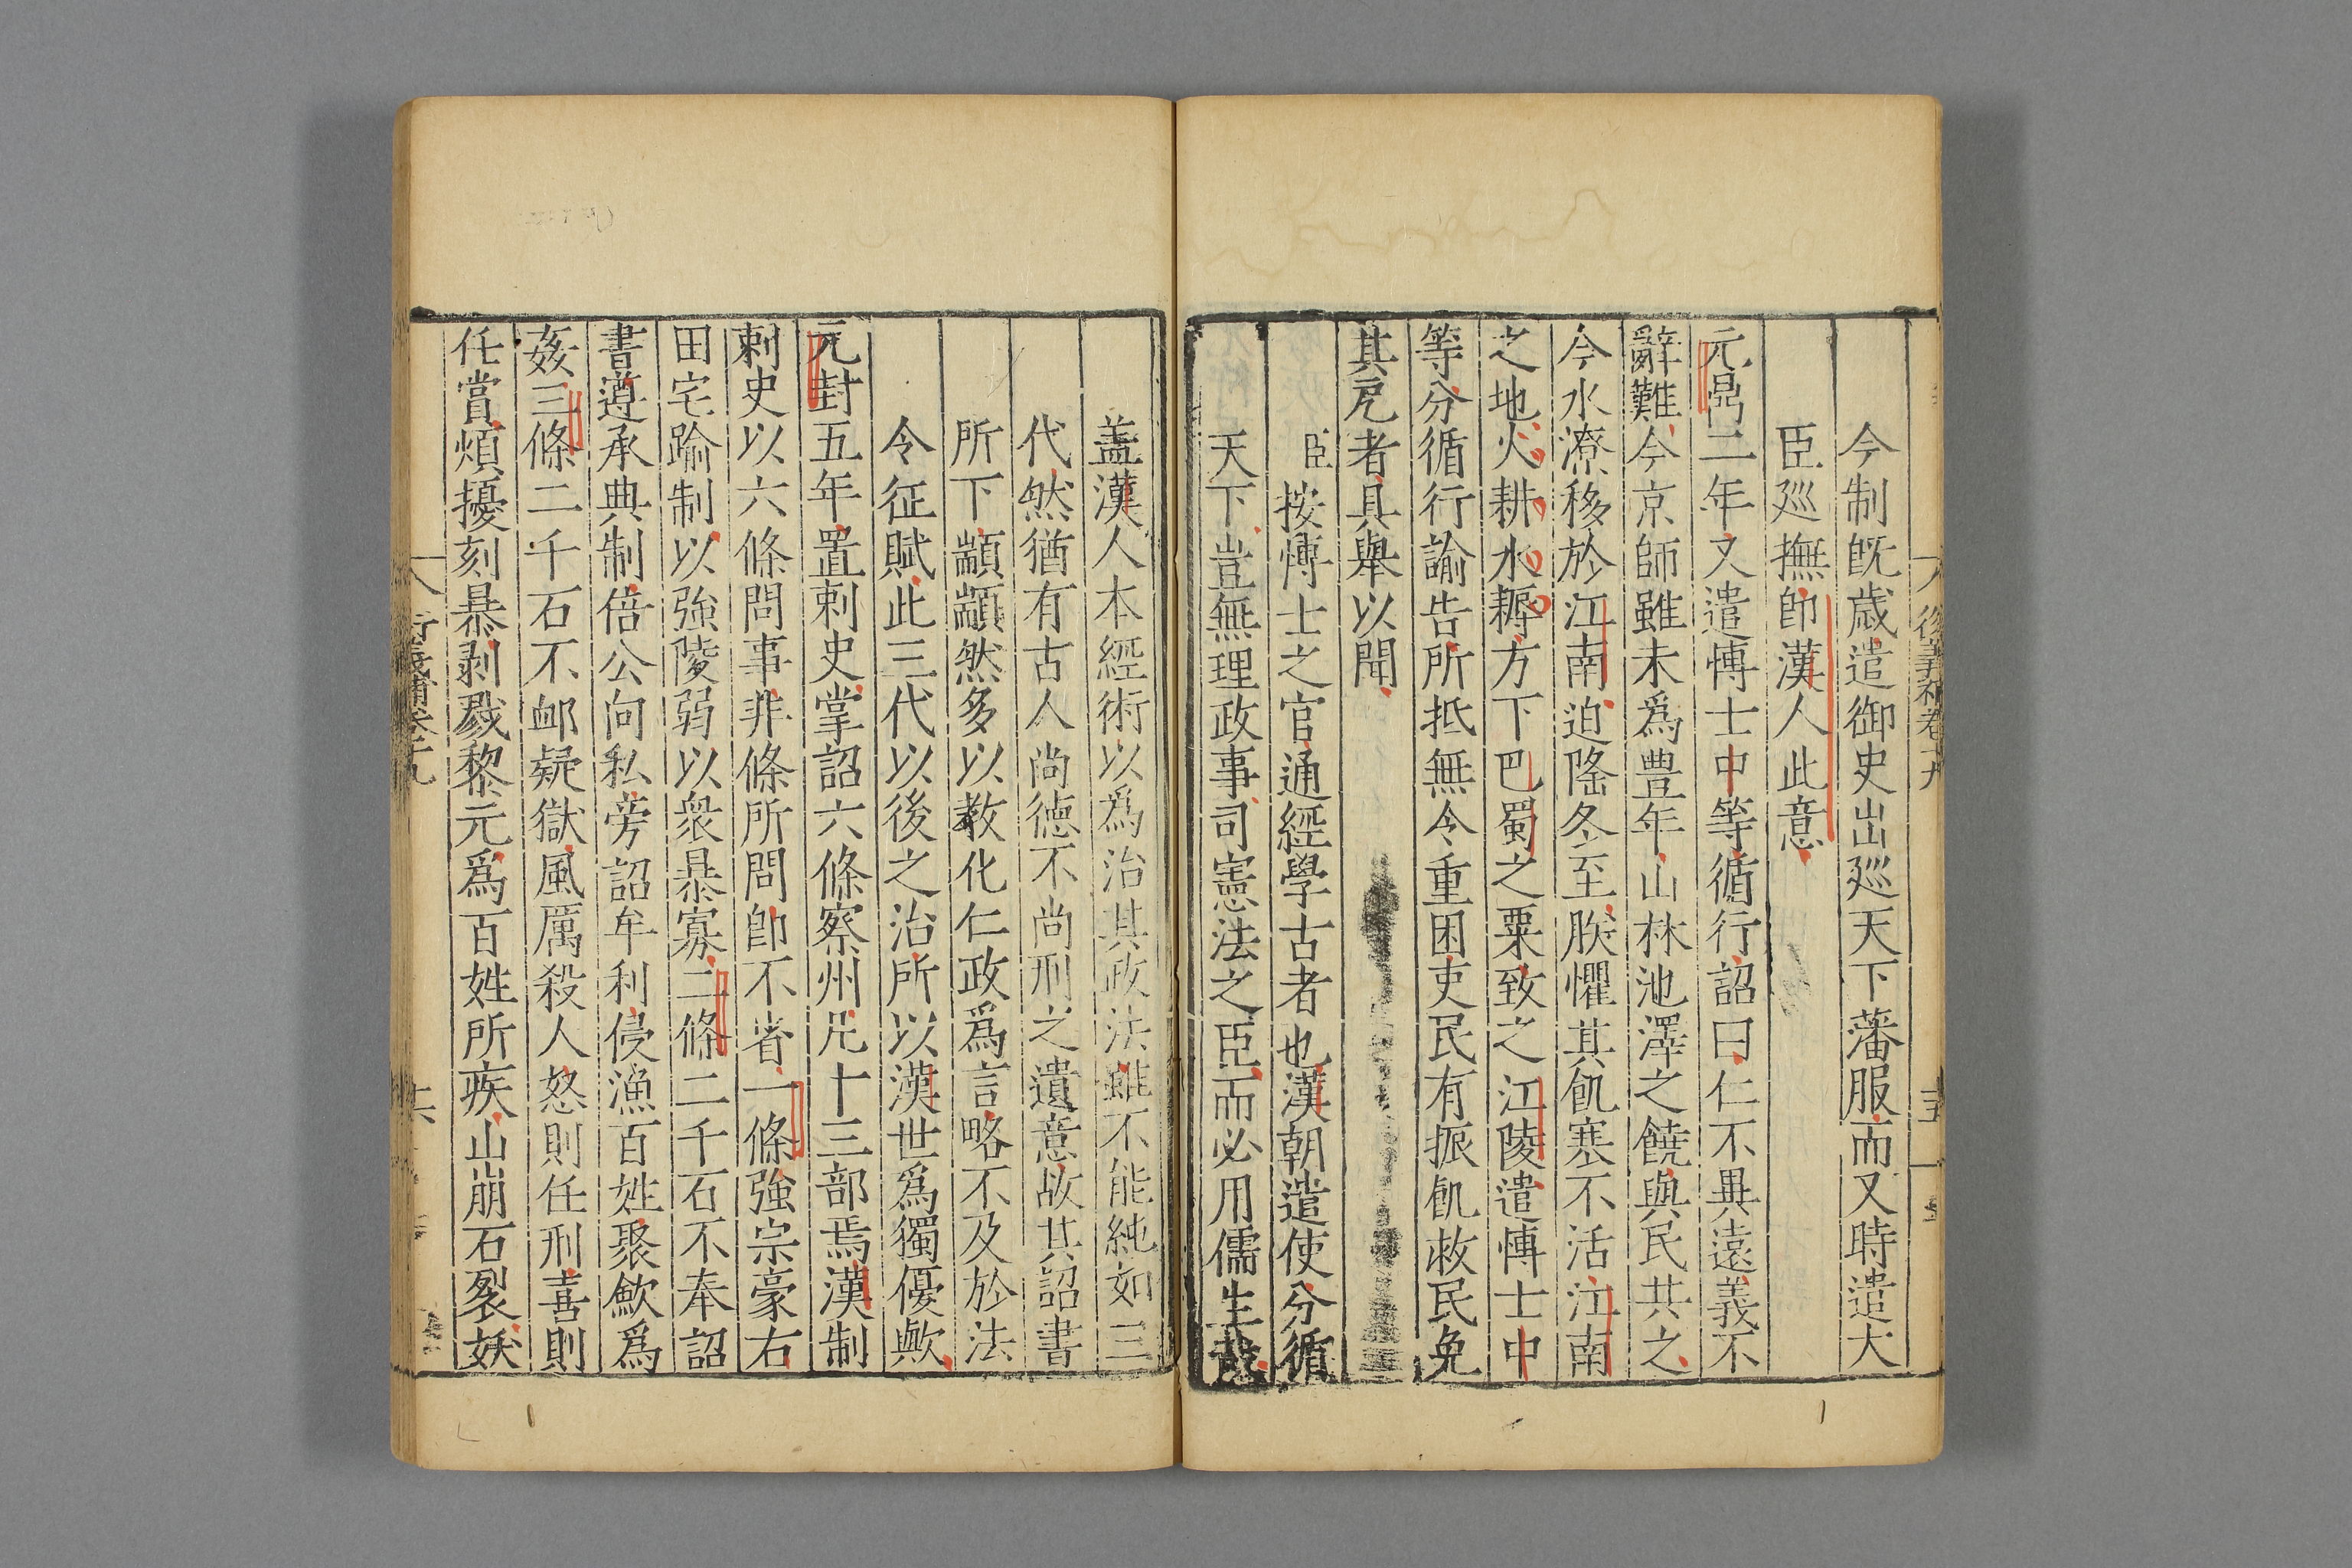 今制旣歲遣御史出廵天下藩服而又時遣大
臣廵撫卽漢人此意
元鼎二年又遣博士中等循行詔曰仁不異遠義不
辭難今京師雖未爲豊年山林池澤之饒與民共之
今水潦移於江南迫隆冬至朕懼其飢寒不活江南
之地火耕水耨方下巴蜀之粟致之江陵遣博士中
等分循行諭告所抵無令重困吏民有振飢救民免
其戹者具舉以聞
臣按博士之官通經學古者也漢朝遣使分循
天下豈無理政事司憲法之臣而必用儒生哉
蓋漢人本經術以爲治其政法雖不能純如三
代然猶有古人尚德不尚刑之遺意故其詔書
所下顓顓然多以教化仁政爲言略不及於法
令征賦此三代以後之治所以漢世爲獨優歟
元封五年置剌史掌詔六條察州凡十三部焉漢制
剌史以六條問事非條所問卽不省一條強宗豪右
田宅踰制以強陵弱以衆暴寡二條二千石不奉詔
書遵承典制倍公向私旁詔牟利侵漁百姓聚歛爲
姦三條二千石不䘏疑獄風厲殺人怒則任刑喜則
任賞煩擾刻暴剥戮黎元爲百姓所疾山崩石裂妖